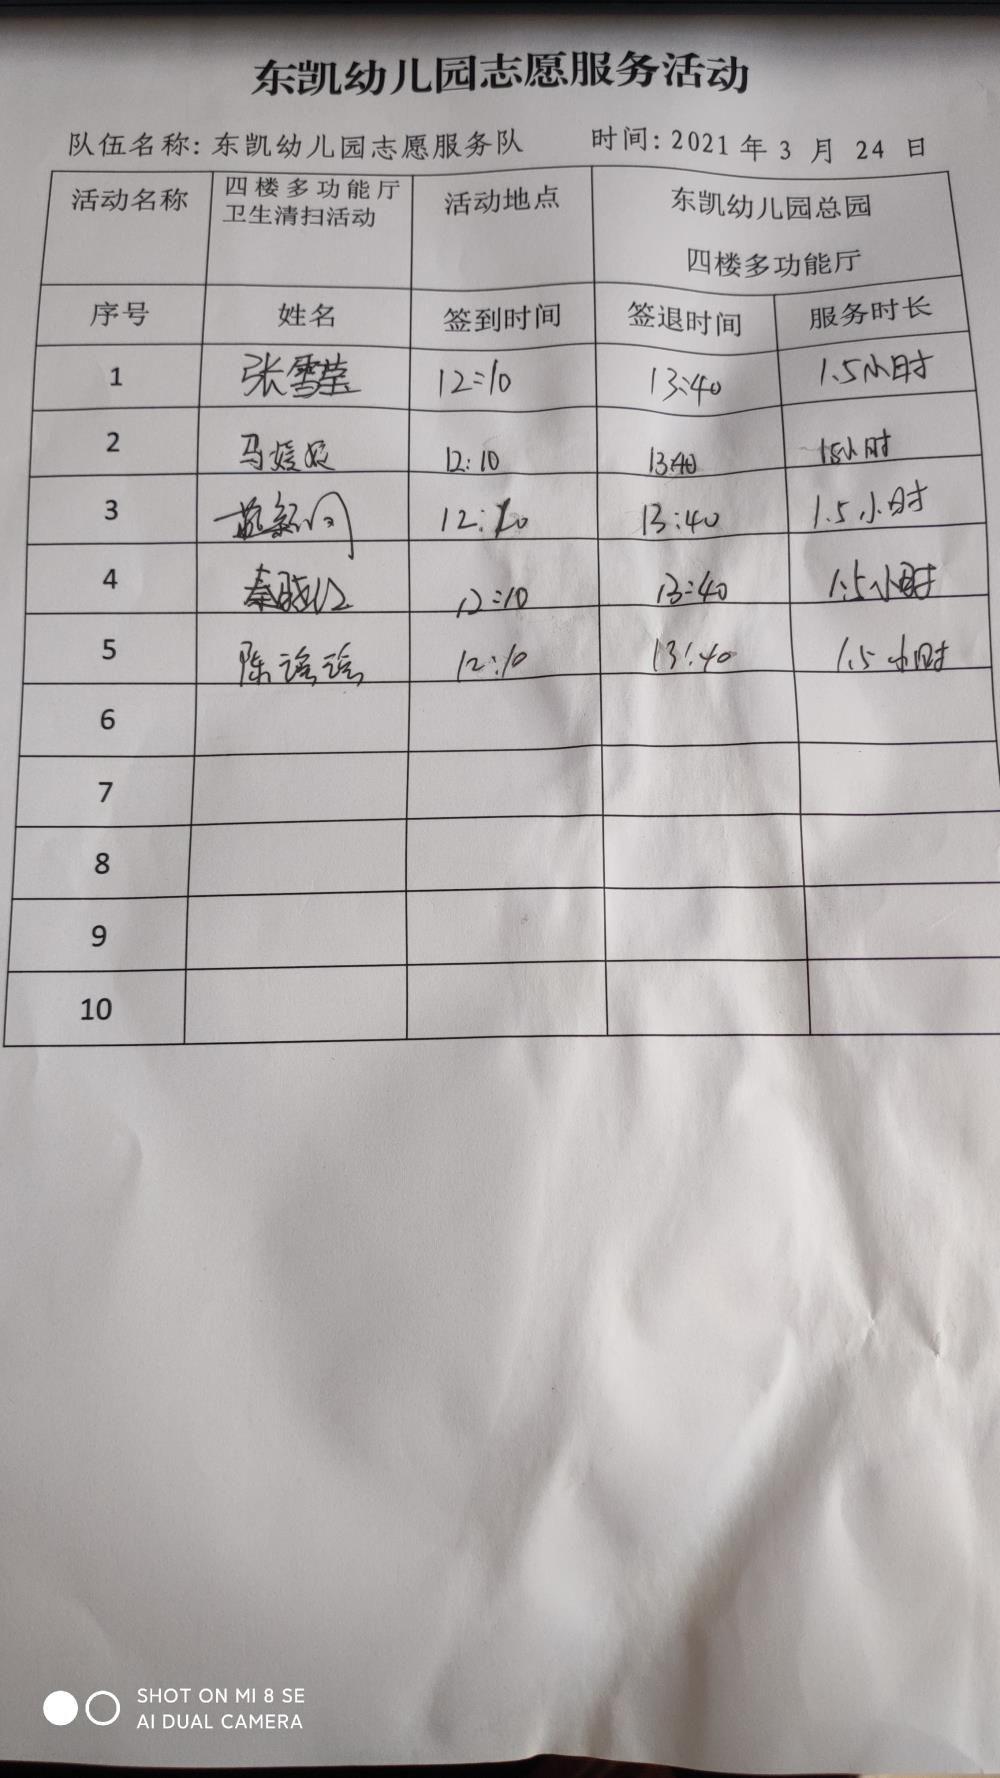 东凯幼儿园志愿服务活动
队伍名称: 东凯幼儿园志愿服务队 时间: 2021 年 3 月 24 日
活动名称 四楼多功能厅 活动地点 东凯幼儿园总园
卫生清扫活动 四楼多功能厅
序号 姓名 签到时间 签退时间 服务时长
1 张雪莹 12:10 13:40 1.5小时
2 马媛媛 12:10 13:40 1.5小时
3 12:10 13:40 1.5小时
4 秦晓红 12:10 13:40 1.5小时
5 陈谣谣 12:10 13:40 1.5小时
6
7
8
9
10
SHOT ON MI 8 SE
AI DUAL CAMERA